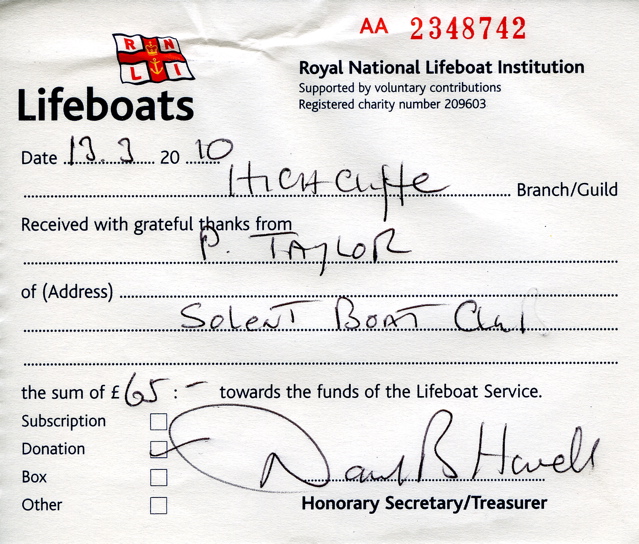 AA 2348742
R N L I
Lifeboats
Royal National Lifeboat Institution
Supported by voluntary contributions
Registered charity number 209603
Date 13.3 20 10
HIGHCliffe Branch/Guild
Received with grateful thanks from
P. TAYLOR
of (Address)
SOLENT BOAT Club
the sum of £65:- towards the funds of the Lifeboat Service.
Subscription
Donation
Box
Other
Honorary Secretary/Treasurer